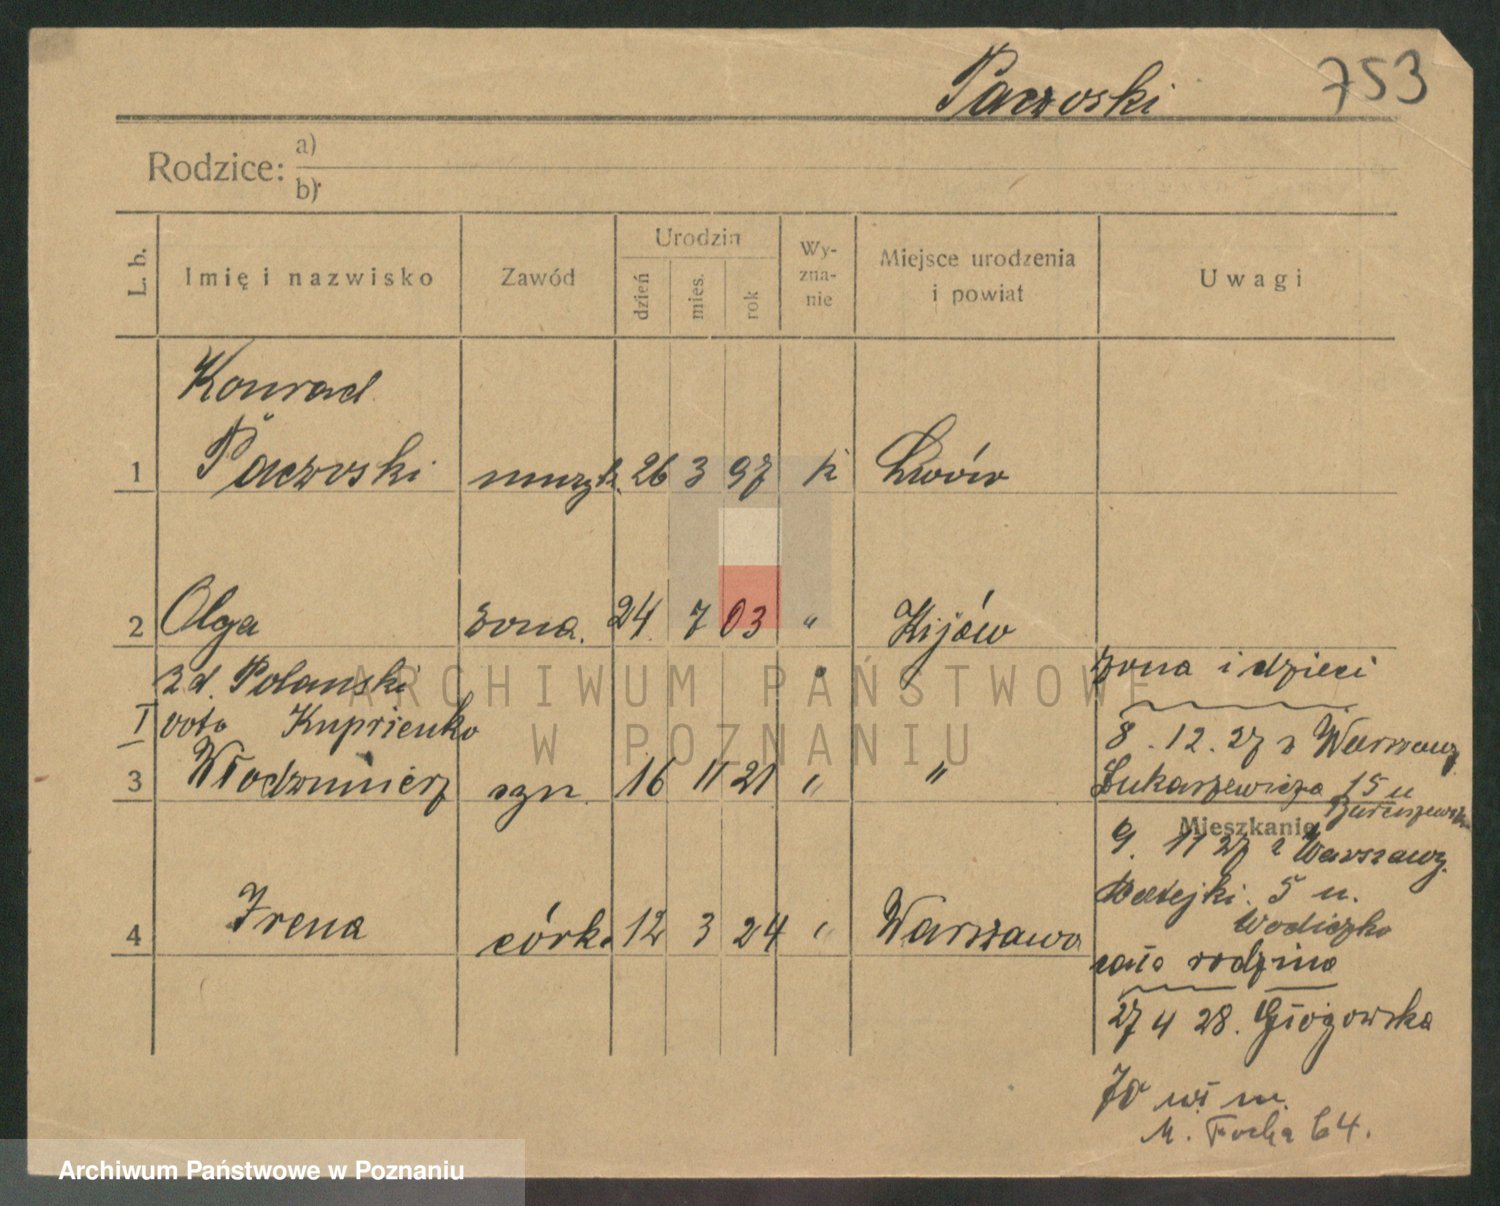 Paczoski 753
Rodzice: a)
b)
L. b. Imię i nazwisko Zawód Urodzin dzień mies. rok Wy-zna-nie Miejsce urodzenia i powiat Uwagi
Konrad
1 Paczoski muzyk. 26 3 97 k Lwów
2 Olga żona. 24 7 03 " Kijów
2 d. Polanski
żona i dzieci
I voto Kuprienko
8. 12. 27 z Warszawy
3 Włodzimierz syn 16 11 21 " "
Łukaszewicza 15 u
Mieszkanie
9. 11 27 z Warszawy.
Matejki. 5 u.
Wodiczko
4 Irena córka 12 3 24 " Warszawa
cała rodzina
27 4 28. Głogowska
70 wł m.
M. Focha 64.
ARCHIWUM PAŃSTWOWE
W POZNANIU
Archiwum Państwowe w Poznaniu